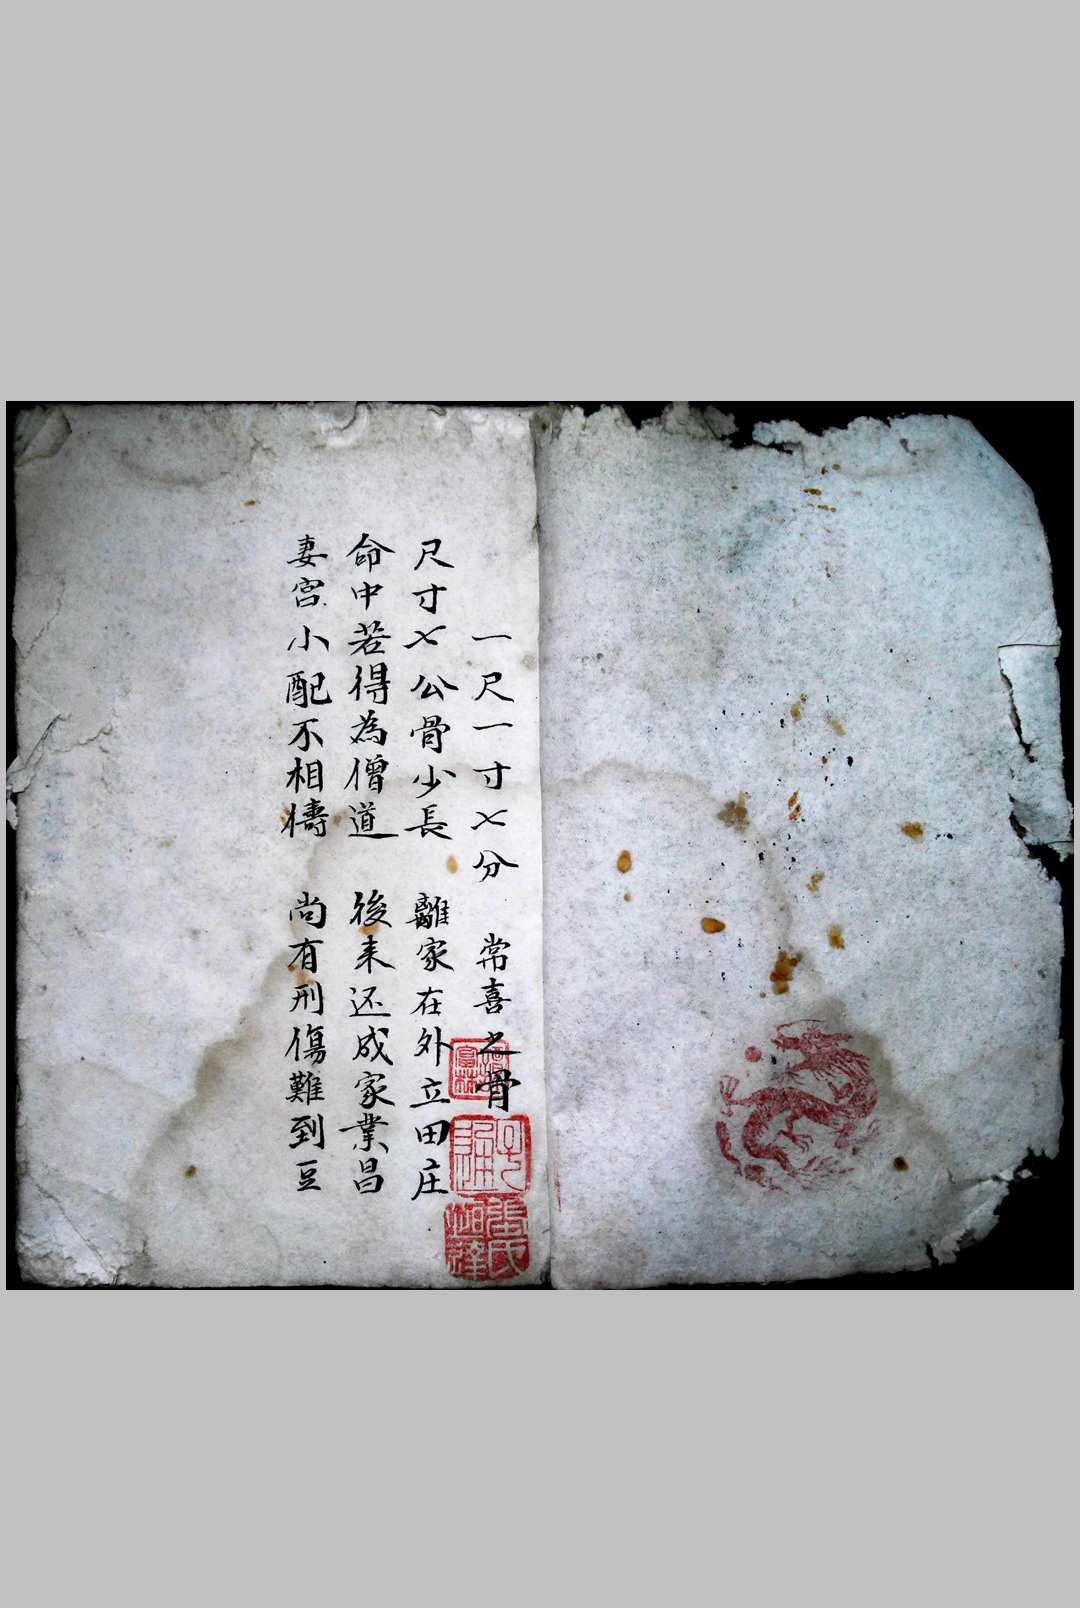 一尺一寸七分 常喜之骨
尺寸七公骨少長 離家在外立田庄
命中若得為僧道 後来还成家業昌
妻宮小配不相儔 尚有刑傷難到豆